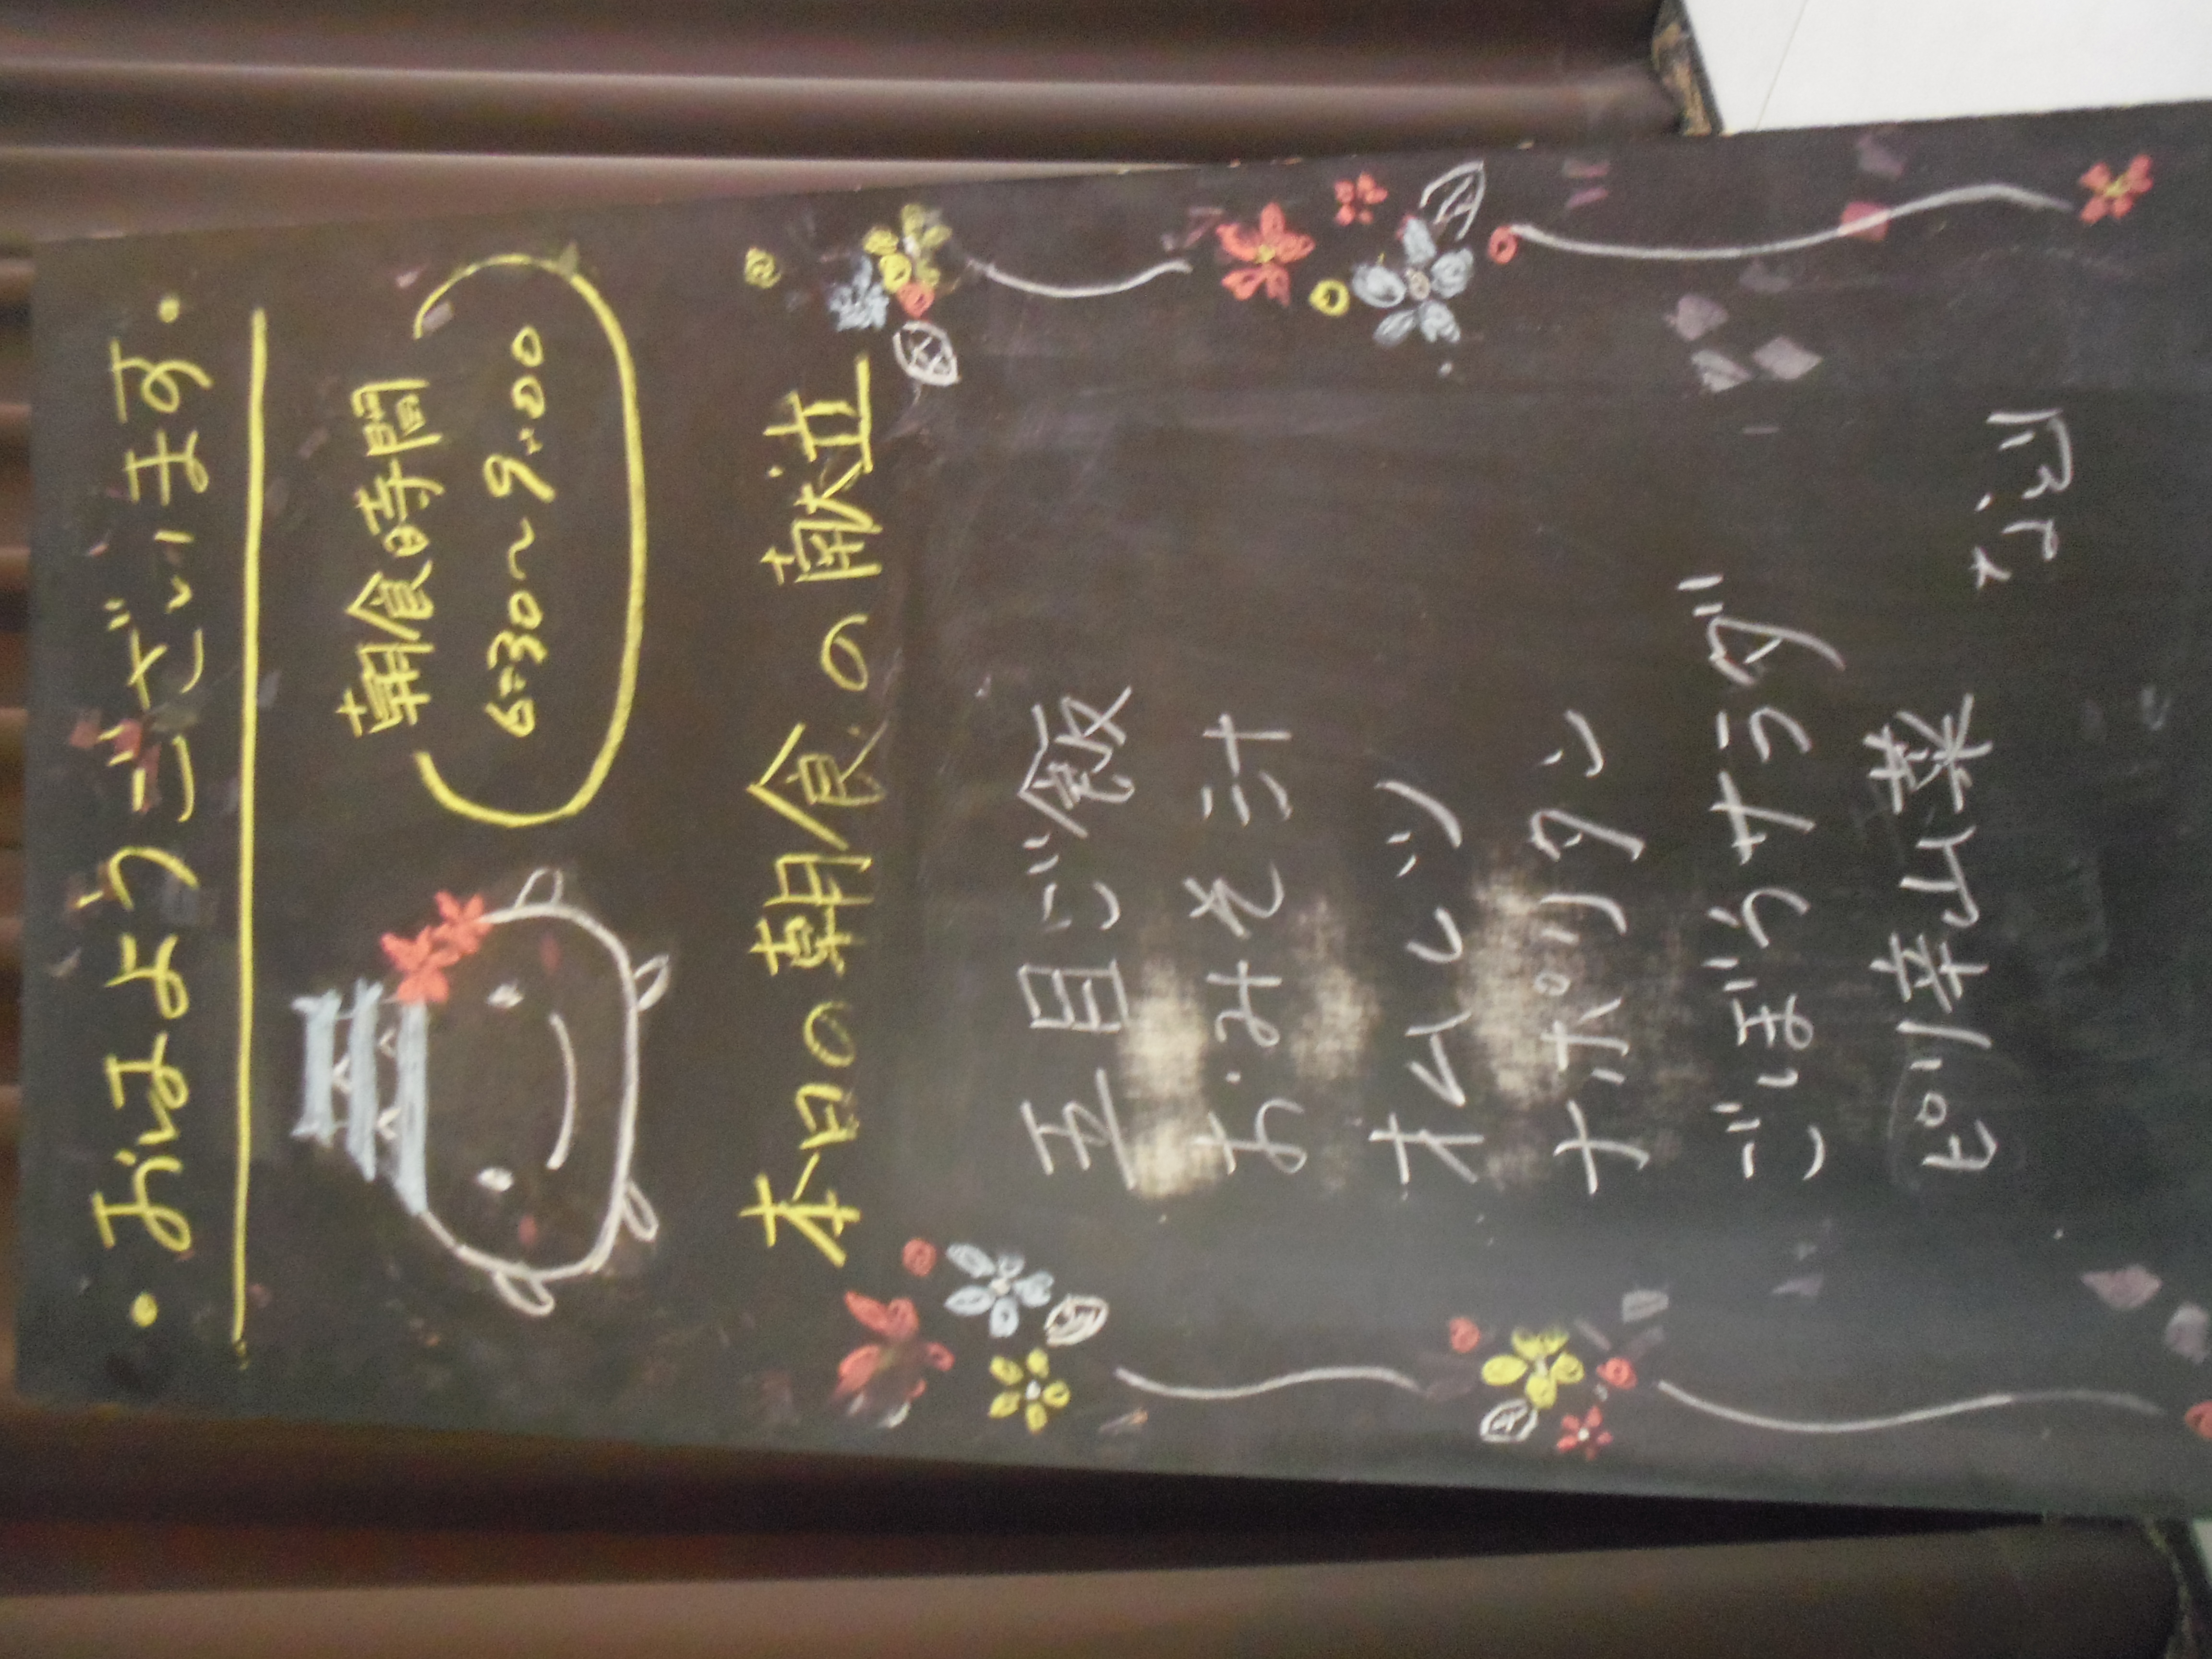 ・おはようございます・
朝食時間
6:30〜9:00
本日の朝食の献立
五目ご飯
おみそ汁
オムレツ
ナポリタン
ごぼうサラダ
ピリ辛山菜
など